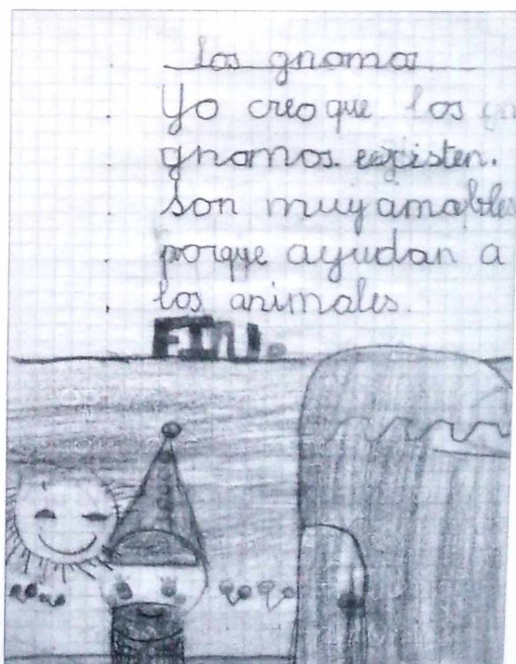 los gnomos
Yo creo que los gn
gnomos existen.
son muy amables
porque ayudan a
los animales.
FIN.